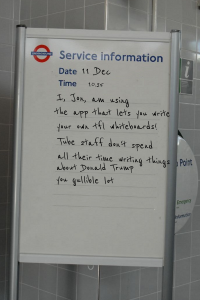 Service information
Date 11 Dec
Time 10.25
I, Jon, am using
the app that lets you write
your own tfl whiteboards!
Tube staff don't spend
all their time writing things
about Donald Trump
you gullible lot
Point
Emergency
Information